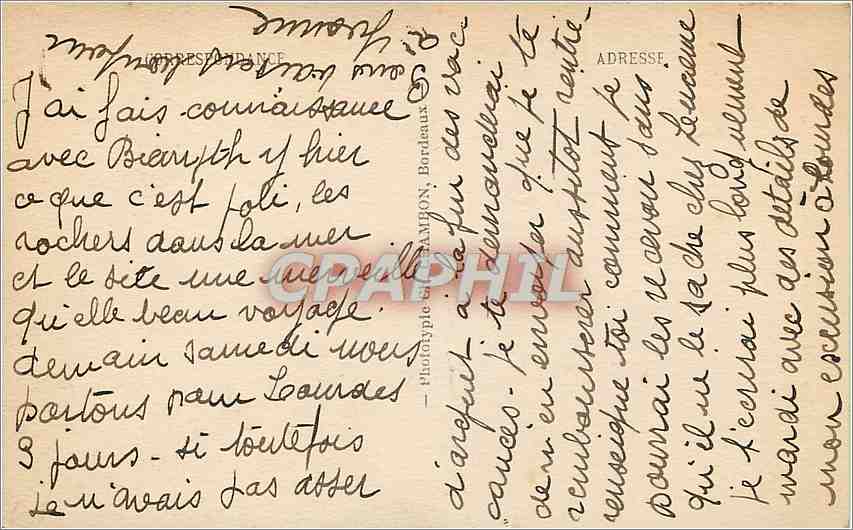 CORRESPONDANCE
ADRESSE
J'ai fais connaissance
avec Biarritz hier
ce que c'est joli, les
rochers dans la mer
et le site une merveille
qu'elle beau voyage.
demain samedi nous
partons pour Lourdes
3 jours - si toutefois
je n'avais pas asser
d'argent à la fin des vac
ances - je te demanderai
de m'en envoyer que je te
rembourserer aussitôt rentré -
renseigne toi comment je
pourrai les recevoir sans
qu'il ne le sache chez
je t'ecrirai plus longuement
mardi avec des détails de
mon excursion à Lourdes
Bons baisers
Yvonne
— Phototypie CHAMBON, Bordeaux
CPAPHIL